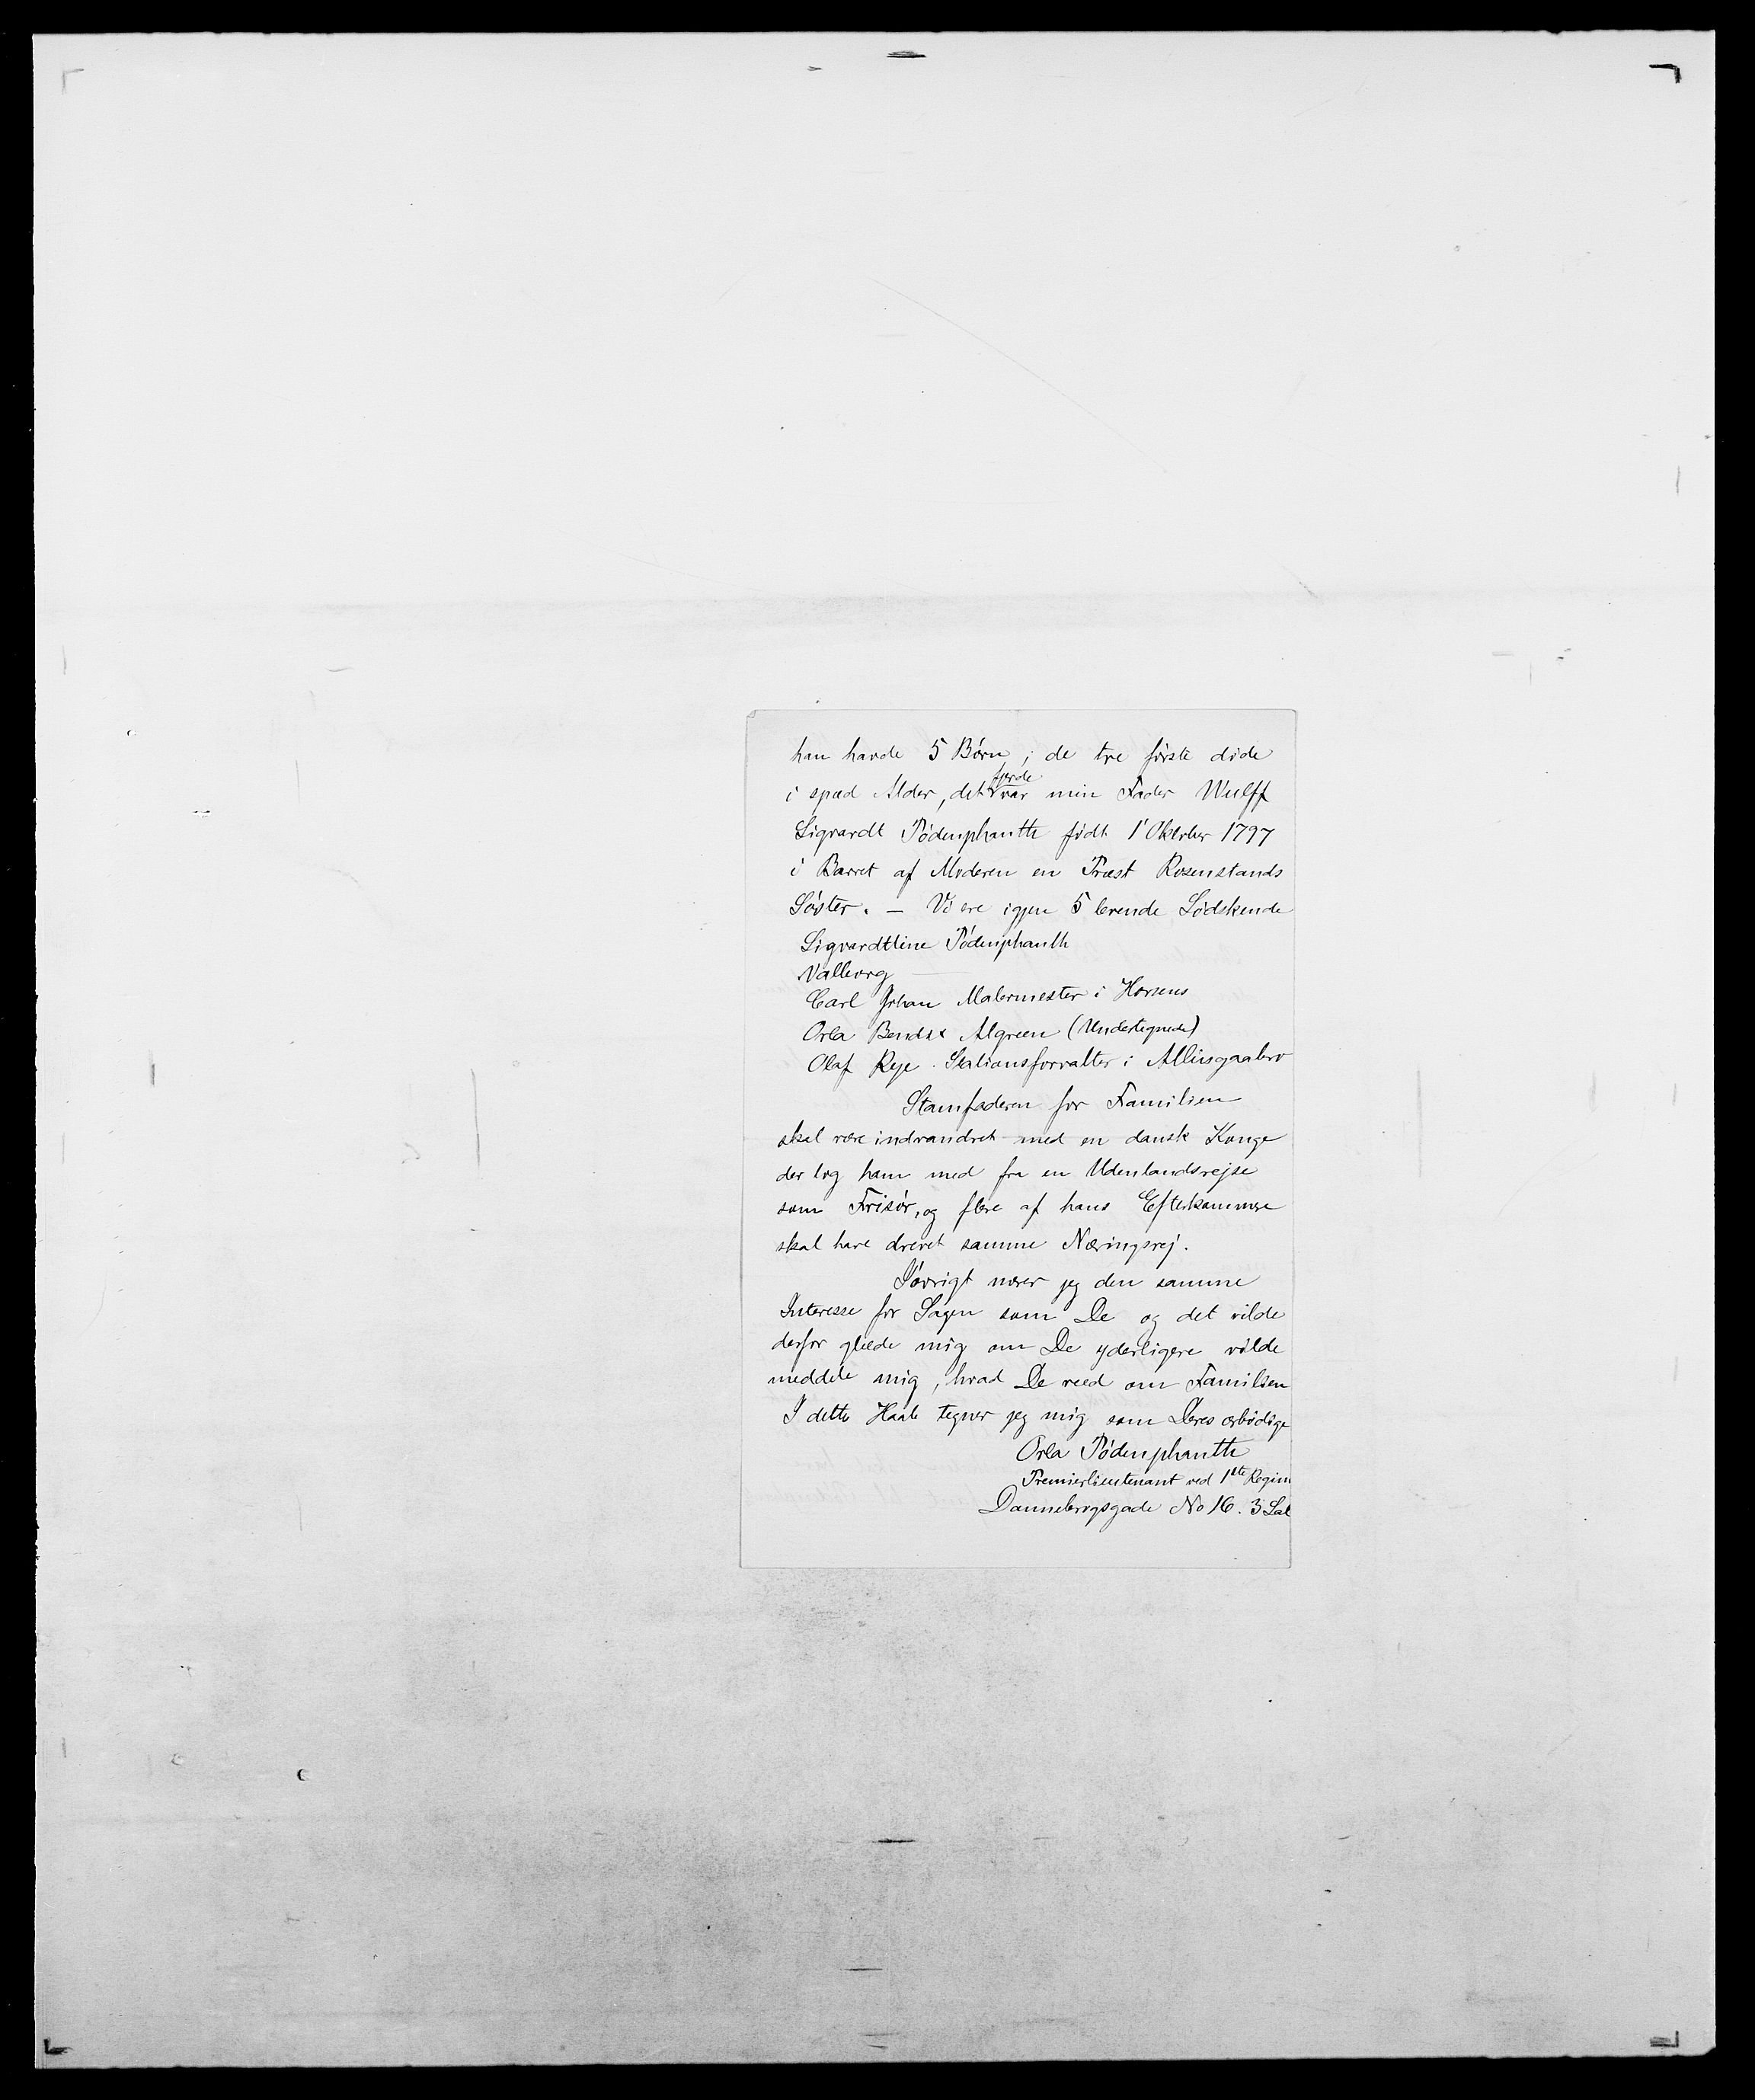 han havde 5 Børn, de tre første døde
i spæd Alder, det fjerde var min Fader Wulff
Sigvardt Pødenphanth født 1' Oktober 1797
i Barret af Moderen en Præst Rosenstands
Søster. — Vi ere igjen 5 levende Sødskende
Sigvardtline Pødenphanth
Valborg —
Carl Johan Malermester i Horsens
Orla Bendix Algreen (Undertegnede)
Olaf Rye. Stationsforvalter i Allinsgaabro
Stamfaderen for Familien
skal være indvandret med en dansk Konge
der tog ham med fra en Udenlandsrejse
som Frisør, og flere af hans Efterkommere
skal have drevet samme Næringsvej.
Iøvrigt nærer jeg den samme
Interesse for Sagen som De og det vilde
derfor glæde mig om De yderligere vilde
meddele mig, hvad De veed om Familien
I dette Haab tegner jeg mig som Deres ærbødige
Orla Pødenphanth
Premierlieutenant ved 1ste Regim
Dannebrogsgade No 16. 3 Sal